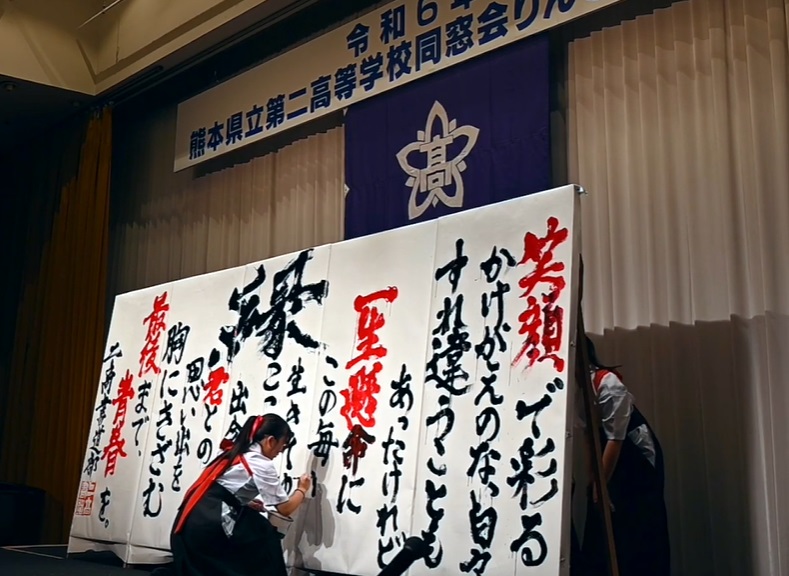 令和6年
熊本県立第二高等学校同窓会りん
高
笑顔で彩る
かけがえのない日々
すれ違うことも
あったけれど
一生懸命に
この毎
生きて
縁
出会
君との
思い出を
胸にきざむ
最後まで、
青春を。
二高書道部